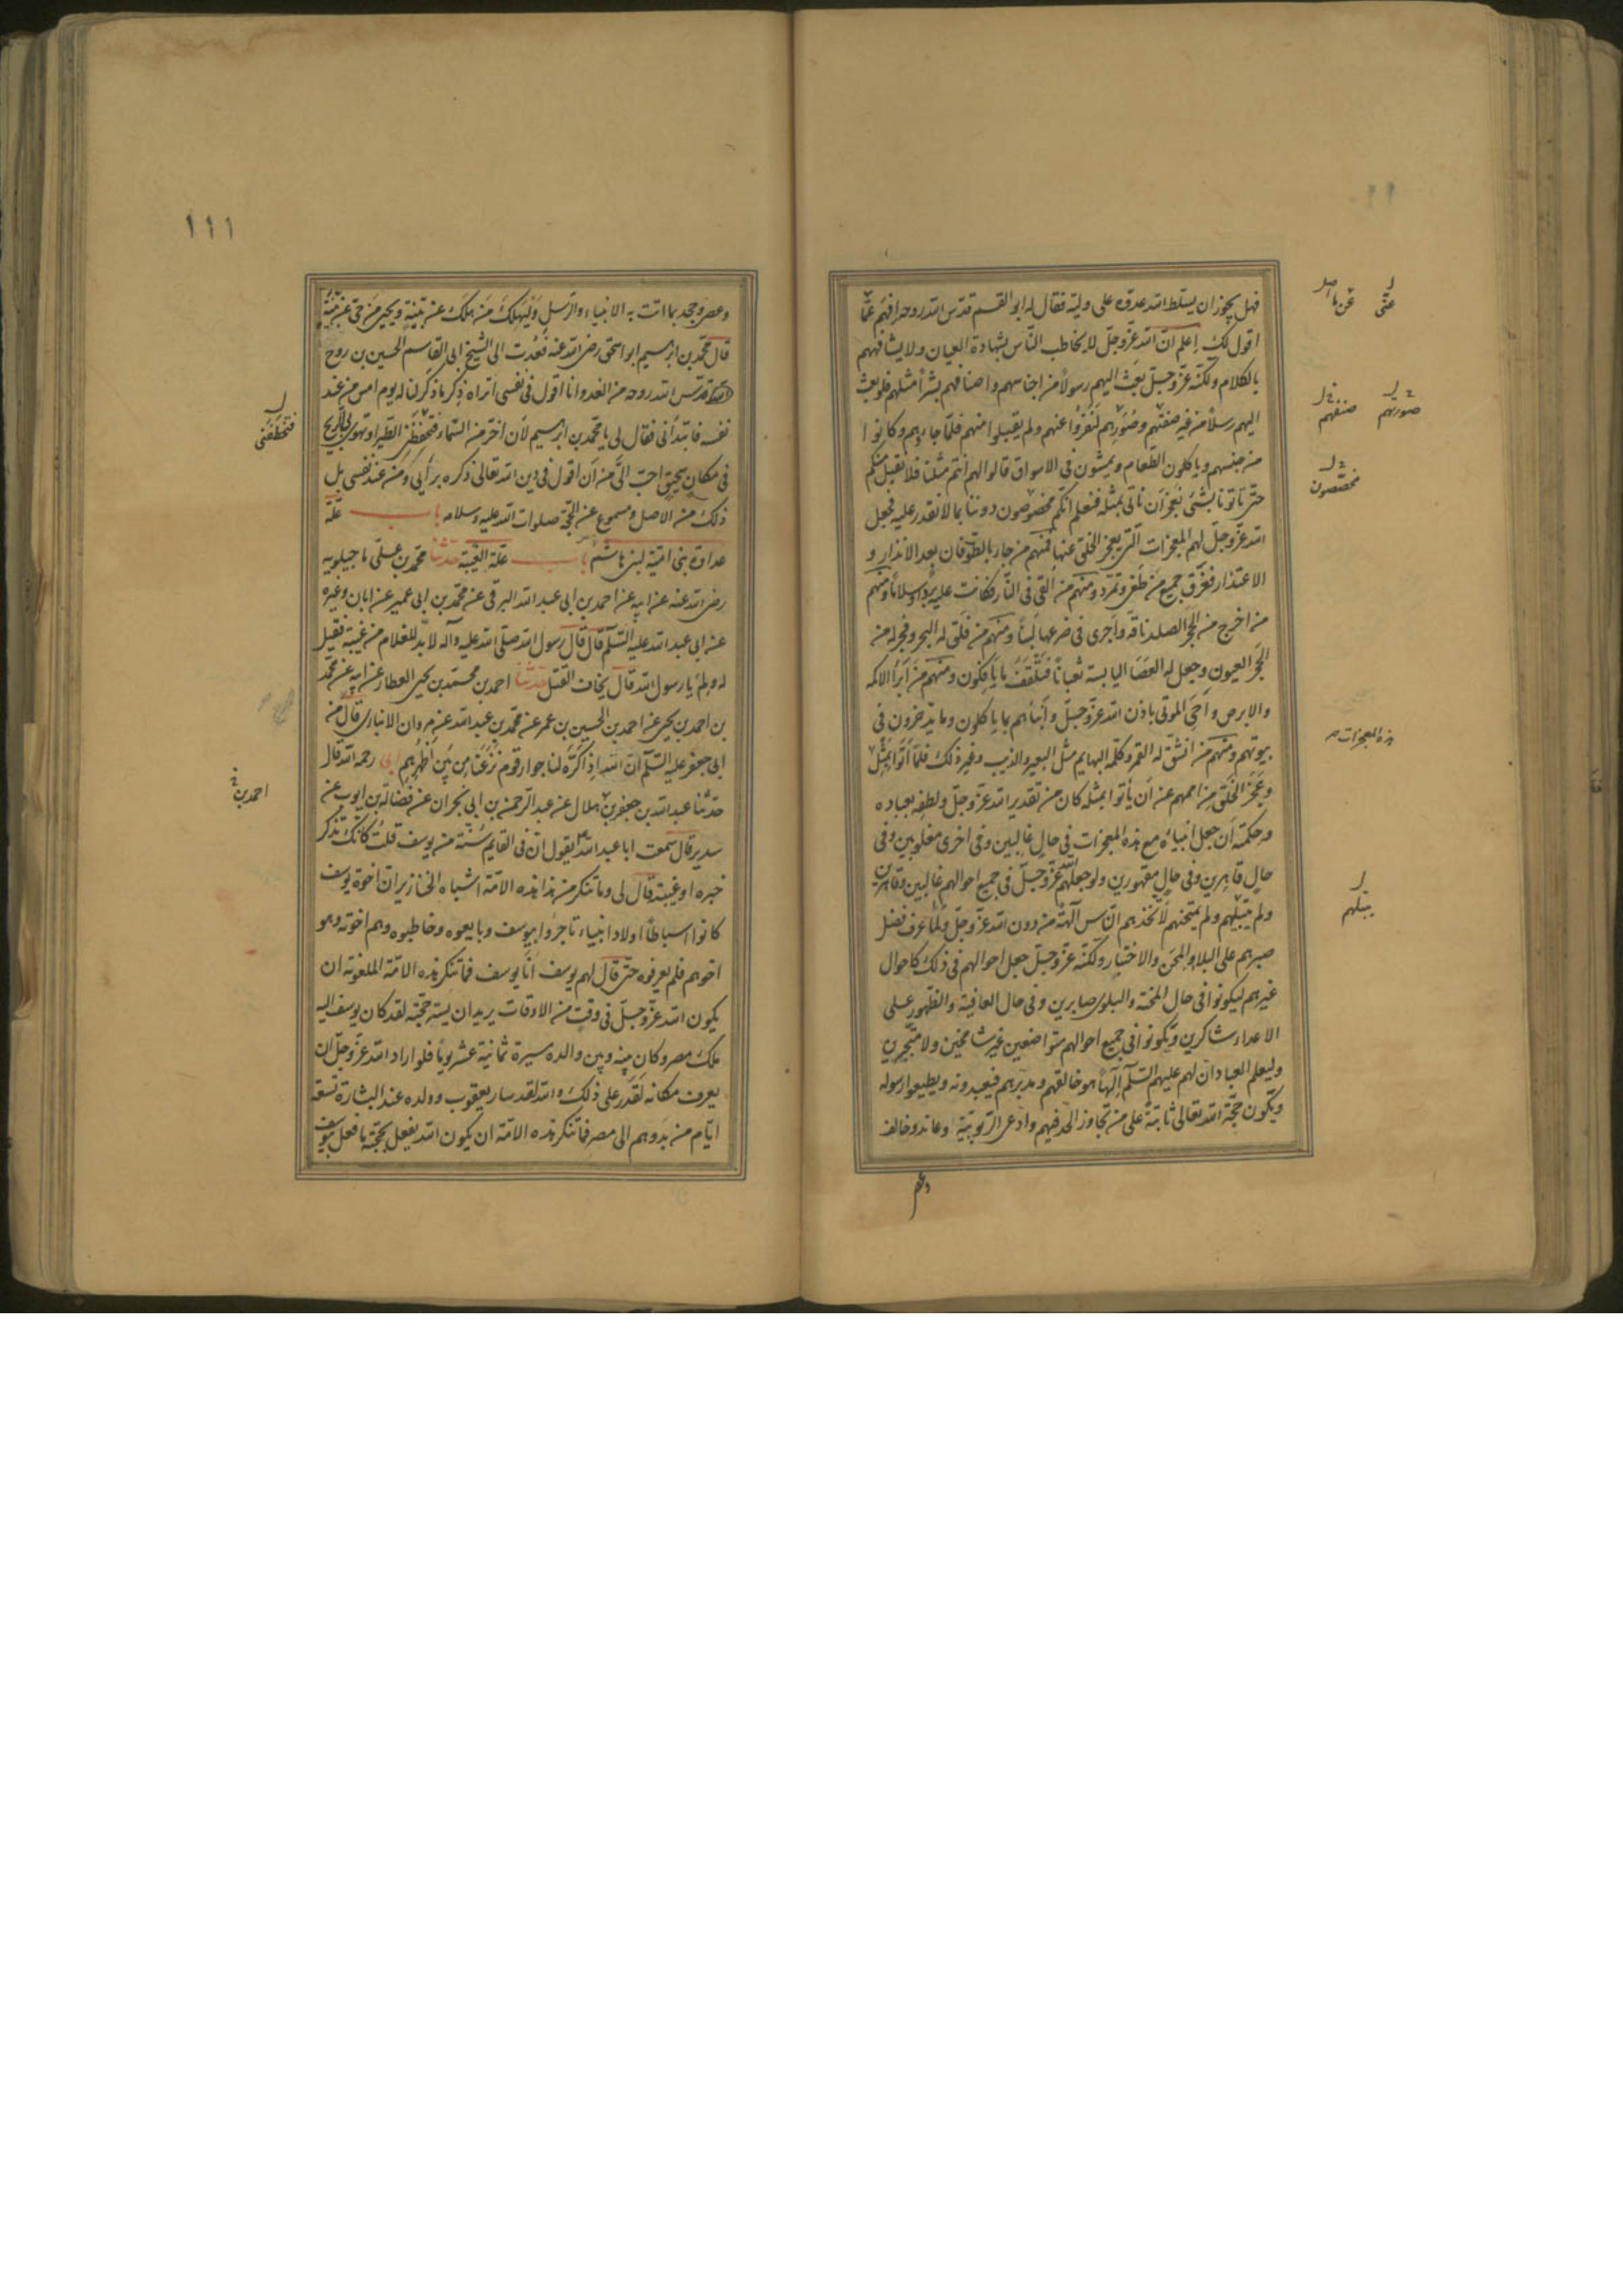 فهل يجوز ان يسلط الله عدوّه على وليّه فقال له ابو القسم قدّس الله روحه افهم عمّا
اقول لك إعلم انّ الله عزّ وجلّ لا يخاطب النّاس بشهادة العيان ولا يشافههم
بالكلام ولكنّه عزّ وجلّ بعث اليهم رسولاً من اجناسهم واصنافهم بشراً مثلهم فلو بعث
اليهم رسلاً من غير صنفهم وصُوَرِهم لَنَفَرُوا عنهم ولم يقبلوا منهم فلمّا جاءوهم وكانوا
من جنسهم وياكلون الطّعام ويمشون فى الاسواق قالوا لهم انتم مثلنا فلا نقبل منكم
حتّى تاتونا بشئ نعجز ان ناتى بمثله فنعلم انّكم مخصوصون دوننا بما لا نقدر عليه فجعل
الله عزّ وجلّ لهم المعجزات الّتى يعجز الخلق عنها فمنهم من جاء بالطّوفان بعد الانذار و
الاعتذار فغرّق جميع من طغى وتمرّد ومنهم من اُلقى فى النّار فكانت عليه برداً وسلاماً ومنهم
من اخرج من الحجر الصلد ناقه واجرى فى ضرعها لبناً ومنهم من فلق له البحر وفجر له من
الحجر العيون وجعل له العصا اليابسة ثعباناً فتلقف ما يافكون ومنهم من ابرأ الاكمه
والابرص واحيى الموتى باذن الله عزّ وجلّ وأنبأهم بما ياكلون وما يدّخرون فى
بيوتهم ومنهم من انشقّ له القمر وكلّمه البهايم مثل البعير والذيب وغير ذلك فلمّا أتوا بمثل
وعجز الخلق من اممهم عن ان يأتوا بمثله كان من تقدير الله عزّ وجلّ ولطفه بعباده
وحكمته ان جعل انبياءه مع هذه المعجزات فى حال غالبين وفى اخرى مغلوبين وفى
حال قاهرين وفى حال مقهورين ولو جعلهم الله عزّ وجلّ فى جميع احوالهم غالبين وقاهرين
ولم يبتليهم ولم يمتحنهم لاتّخذهم النّاس آلهة من دون الله عزّ وجلّ ولما عرف فضل
صبرهم على البلاء والمحن والاختبار ولكنّه عزّ وجلّ جعل احوالهم فى ذلك كاحوال
غيرهم ليكونوا فى حال المحنة والبلوى صابرين وفى حال العافية والظّهور على
الاعداء شاكرين ويكونوا فى جميع احوالهم متواضعين غير شامخين ولا متجبّرين
وليعلم العباد ان لهم عليهم السّلم آلهاً هو خالقهم ومدبّرهم فيعبدونه ويطيعوا رسوله
ويكون حجّة الله تعالى ثابتة على من تجاوز الحدّ فيهم وادّعى الرّبوبيّة وعاند وخالف
وعصى
عنّى
صورهم
صنفهم
مخصّصون
هذه المعجزات
يبتلهم
١١١
وعصى وجحد بما اتت به الانبياء والرّسل وَلِيَهلك من هلك عن بيّنة ويحيى من حىّ عن بيّنة
قال محمّد بن ابرهيم ابو اسحق رضى الله عنه فعُدت الى الشيخ ابى القاسم الحسين بن روح
قدّس الله روحه من الغد وانا اقول فى نفسى اتراه ذكر ما ذكر لنا يوم امس من عند
نفسه فابتدأنى فقال لى يا محمّد بن ابرهيم لان اخرّ من السّماء فتخطفنى الطّير او تهوى بى الرّيح
فى مكان سحيق احبّ الىّ من ان اقول فى دين الله تعالى ذكره برأيى ومن عند نفسى بل
ذلك من الاصل ومسموع عن الحجّة صلوات الله عليه وسلامه باب علّة
عداوة بنى اميّة لبنى هاشم باب علّة الغيبة حدثنا محمّد بن علىّ ماجيلويه
رضى الله عنه عن ابيه عن احمد بن ابى عبد الله البرقى عن محمّد بن ابى عمير عن ابان وغيره
عن ابى عبد الله عليه السّلم قال قال رسول الله صلّى الله عليه وآله لا بدّ للغلام من غيبة فقيل
له ولم يا رسول الله قال يخاف القتل حدثنا احمد بن محمّد بن يحيى العطار عن ابيه عن محمّد
بن احمد بن يحيى عن احمد بن الحسين بن عمر عن محمّد بن عبد الله عن مروان الانبارى قال من
ابى جعفر عليه السّلم انّ الله اذا كره لنا جوار قوم نزعنا من بين أظهُرِهم ابى رحمه الله قال
حدّثنا عبد الله بن جعفر بن هلال عن عبد الرّحمن بن ابى نجران عن فضالة بن ايوب عن
سدير قال سمعت ابا عبد الله يقول انّ فى القايم سُنّة من يوسف قلت كانّك تذكر
خبره او غيبته قال لى وما تنكر من هذا هذه الامّة اشباه الخنازير ان اخوة يوسف
كانوا اسباطاً اولاد انبياء تاجروا بيوسف وبايعوه وخاطبوه وهم اخوته وهو
اخوهم فلم يعرفوه حتّى قال لهم يوسف انا يوسف فما تنكر هذه الامّة الملعونة ان
يكون الله عزّ وجلّ فى وقت من الاوقات يريد ان يستر حجّته لقد كان يوسف اليه
ملك مصر وكان بينه وبين والده مسيرة ثمانية عشر يوماً فلو اراد الله عزّ وجلّ ان
يعرف مكانه لقدر على ذلك والله لقد سار يعقوب وولده عند البشارة تسعة
ايّام من بدوهم الى مصر فما تنكر هذه الامّة ان يكون الله يفعل بحجّته ما فعل بيوسف
فتخطفنى
احمد بن